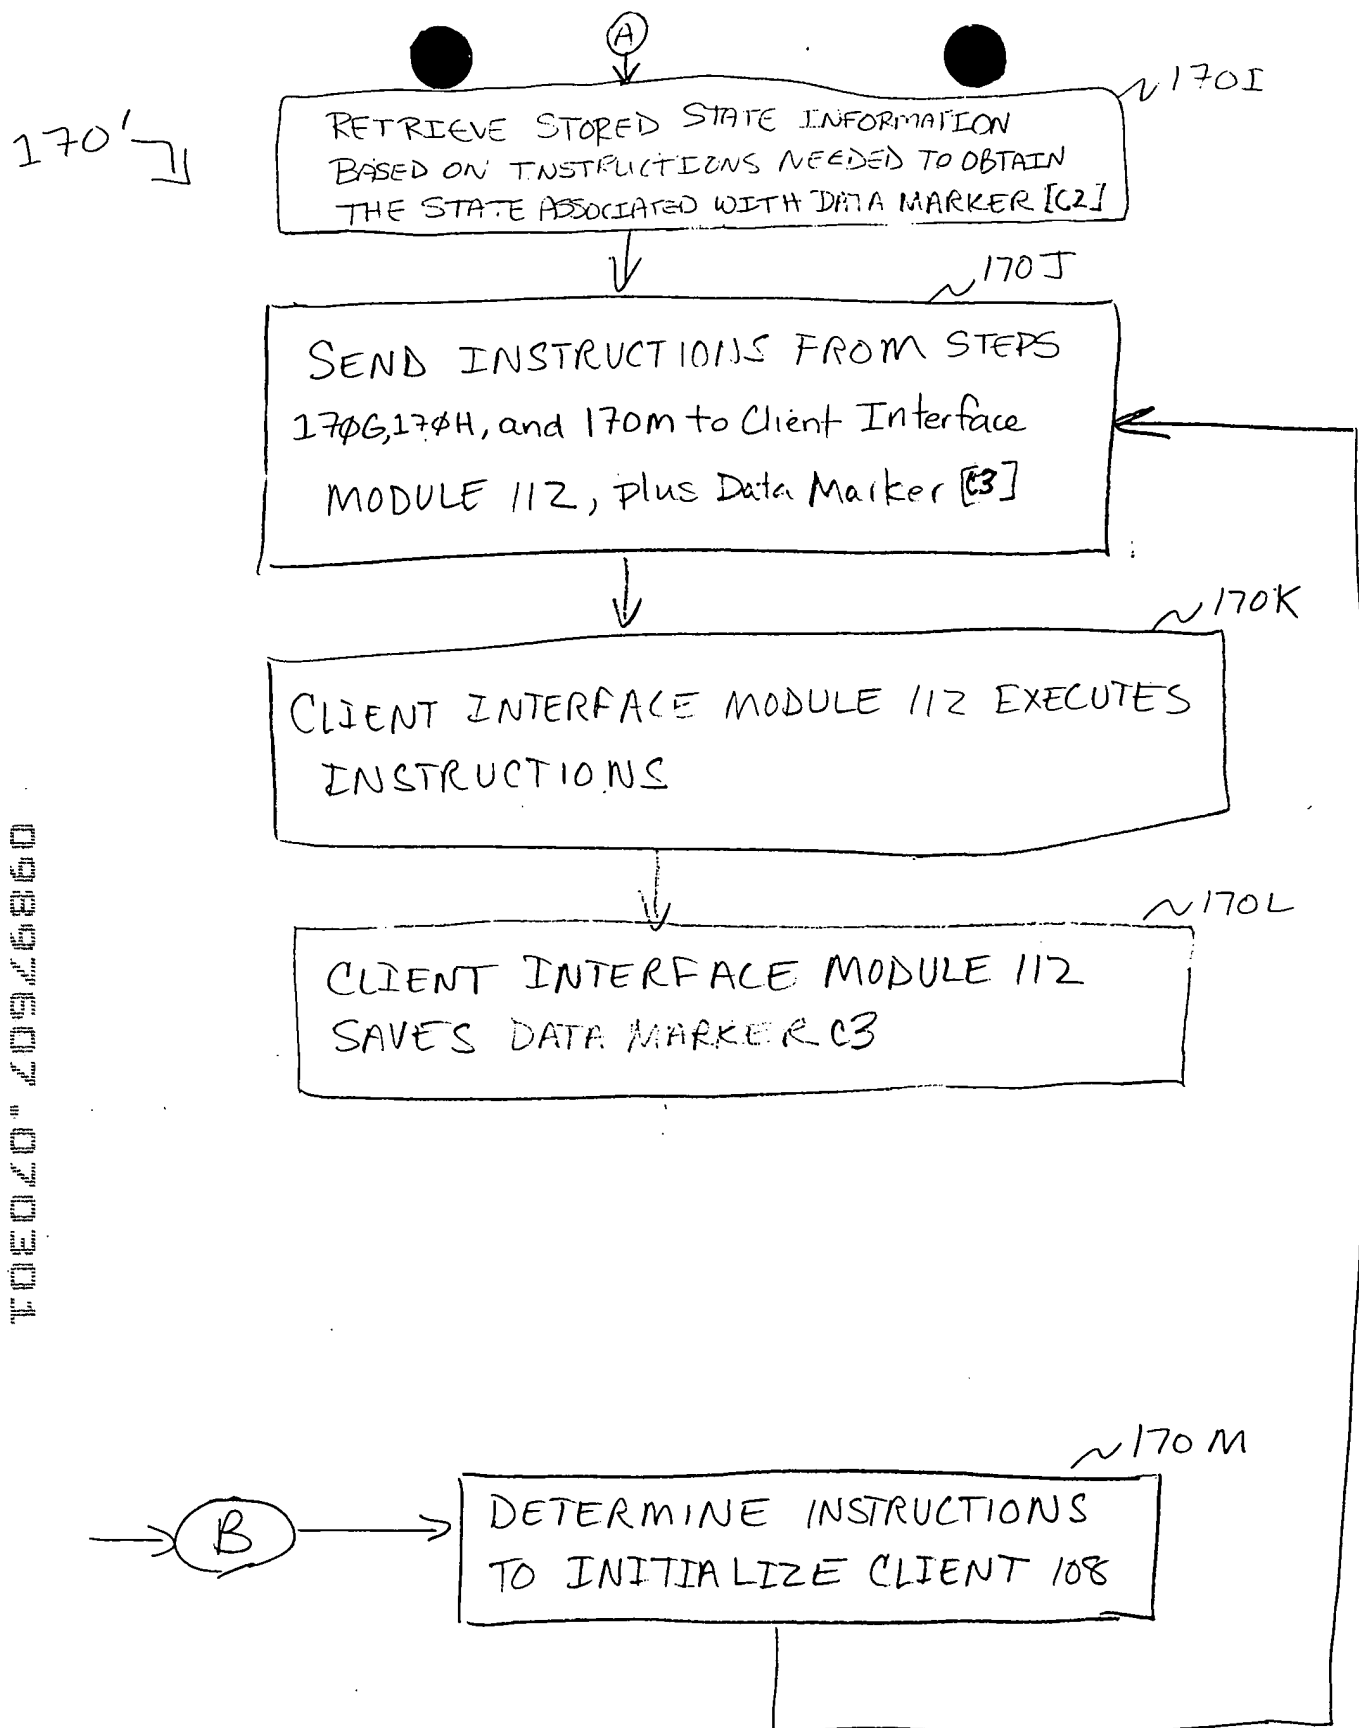 A
170I
170'
RETRIEVE STORED STATE INFORMATION
BASED ON INSTRUCTIONS NEEDED TO OBTAIN
THE STATE ASSOCIATED WITH DATA MARKER [C2]
170J
SEND INSTRUCTIONS FROM STEPS
17øG,17øH, and 170M to Client Interface
MODULE 112, plus Data Marker [C3]
170K
CLIENT INTERFACE MODULE 112 EXECUTES
INSTRUCTIONS
170L
CLIENT INTERFACE MODULE 112
SAVES DATA MARKER C3
09897607.070301
170M
B
DETERMINE INSTRUCTIONS
TO INITIALIZE CLIENT 108